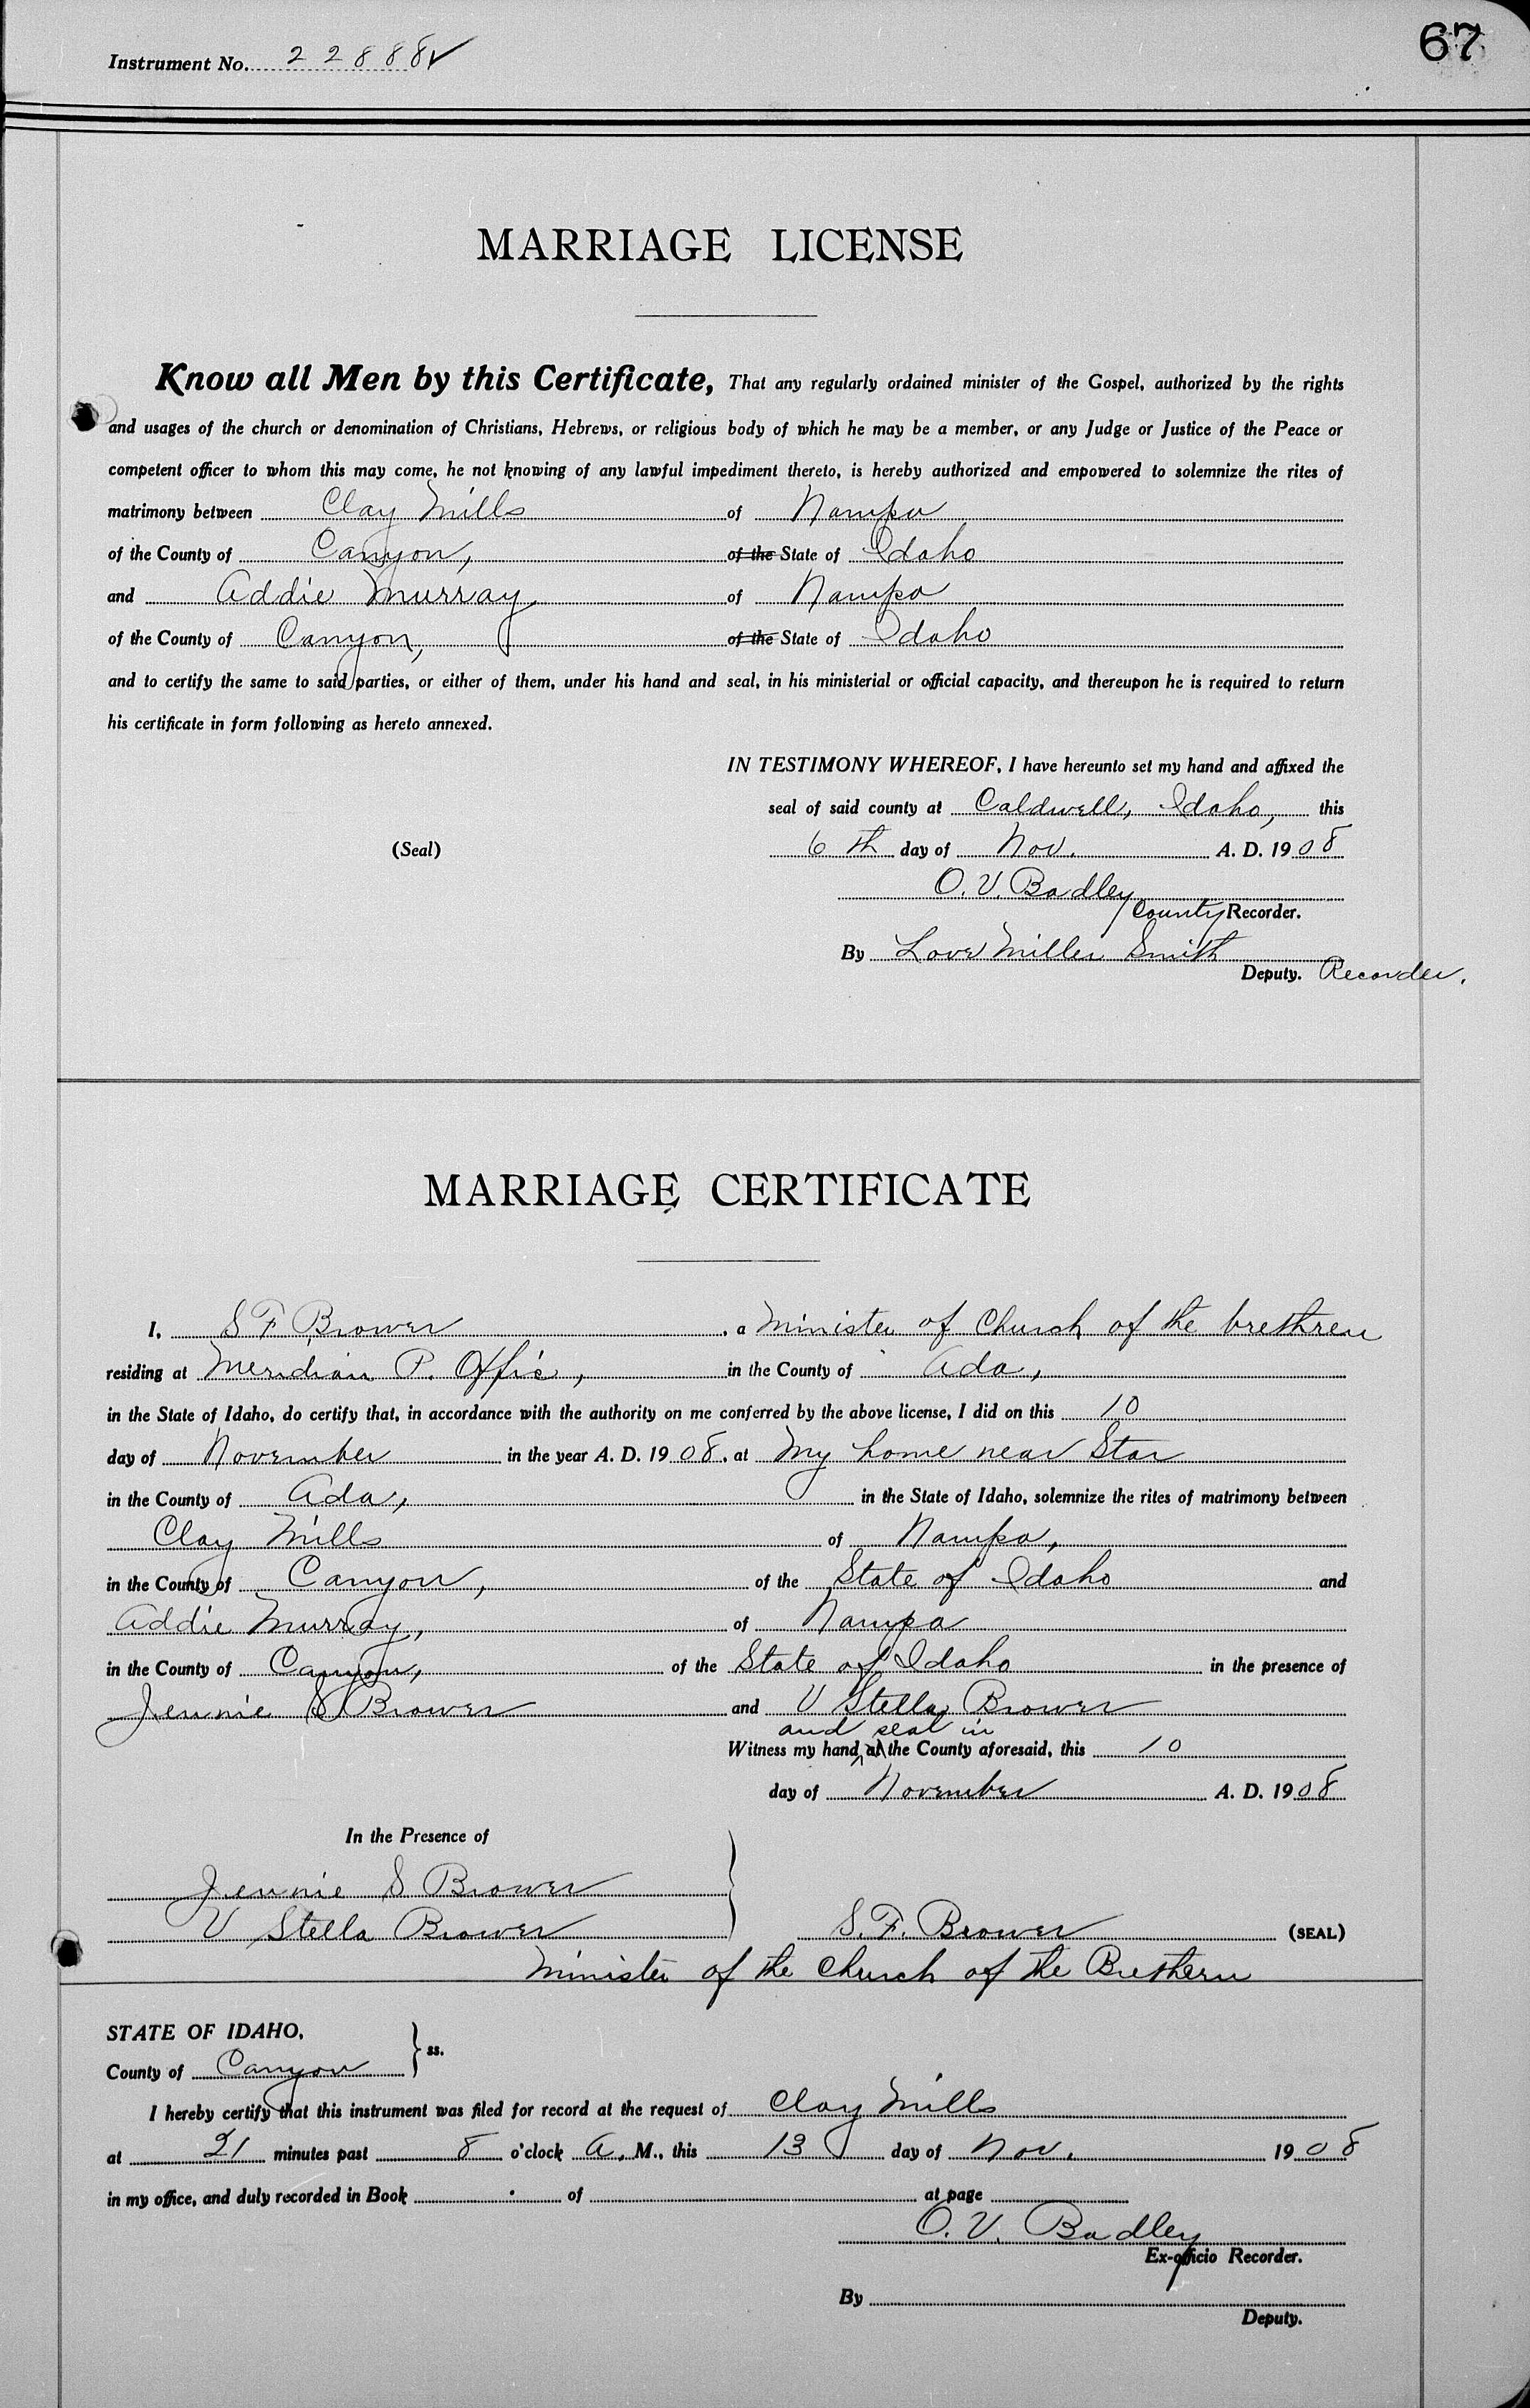 67
Instrument No. 22888✓
MARRIAGE LICENSE
Know all Men by this Certificate, That any regularly ordained minister of the Gospel, authorized by the rights
and usages of the church or denomination of Christians, Hebrews, or religious body of which he may be a member, or any Judge or Justice of the Peace or
competent officer to whom this may come, he not knowing of any lawful impediment thereto, is hereby authorized and empowered to solemnize the rites of
matrimony between Clay Mills of Nampa
of the County of Canyon, of the State of Idaho
and Addie Murray of Nampa
of the County of Canyon, of the State of Idaho
and to certify the same to said parties, or either of them, under his hand and seal, in his ministerial or official capacity, and thereupon he is required to return
his certificate in form following as hereto annexed.
IN TESTIMONY WHEREOF, I have hereunto set my hand and affixed the
seal of said county at Caldwell, Idaho, this
(Seal) 6th day of Nov. A. D. 1908
O. V. Badley
County Recorder.
By Love Miller Smith
Deputy. Recorder.
MARRIAGE CERTIFICATE
I, S F Brower, a Minister of Church of the brethren
residing at Meridian P. Offic, in the County of Ada,
in the State of Idaho, do certify that, in accordance with the authority on me conferred by the above license, I did on this 10
day of November in the year A. D. 1908, at My home near Star
in the County of Ada, in the State of Idaho, solemnize the rites of matrimony between
Clay Mills of Nampa,
in the County of Canyon, of the State of Idaho and
Addie Murray, of Nampa
in the County of Canyon, of the State of Idaho in the presence of
Jennie S Brower and V Stella Brower
and seal in
Witness my hand at the County aforesaid, this 10
day of November A. D. 1908
In the Presence of
Jennie S Brower
V Stella Brower S. F. Brower (SEAL)
Minister of the Church of the Brethern
STATE OF IDAHO,
County of Canyon } ss.
I hereby certify that this instrument was filed for record at the request of Clay Mills
at 21 minutes past 8 o'clock A. M., this 13 day of Nov. 1908
in my office, and duly recorded in Book of at page
O. V. Badley
Ex-officio Recorder.
By
Deputy.